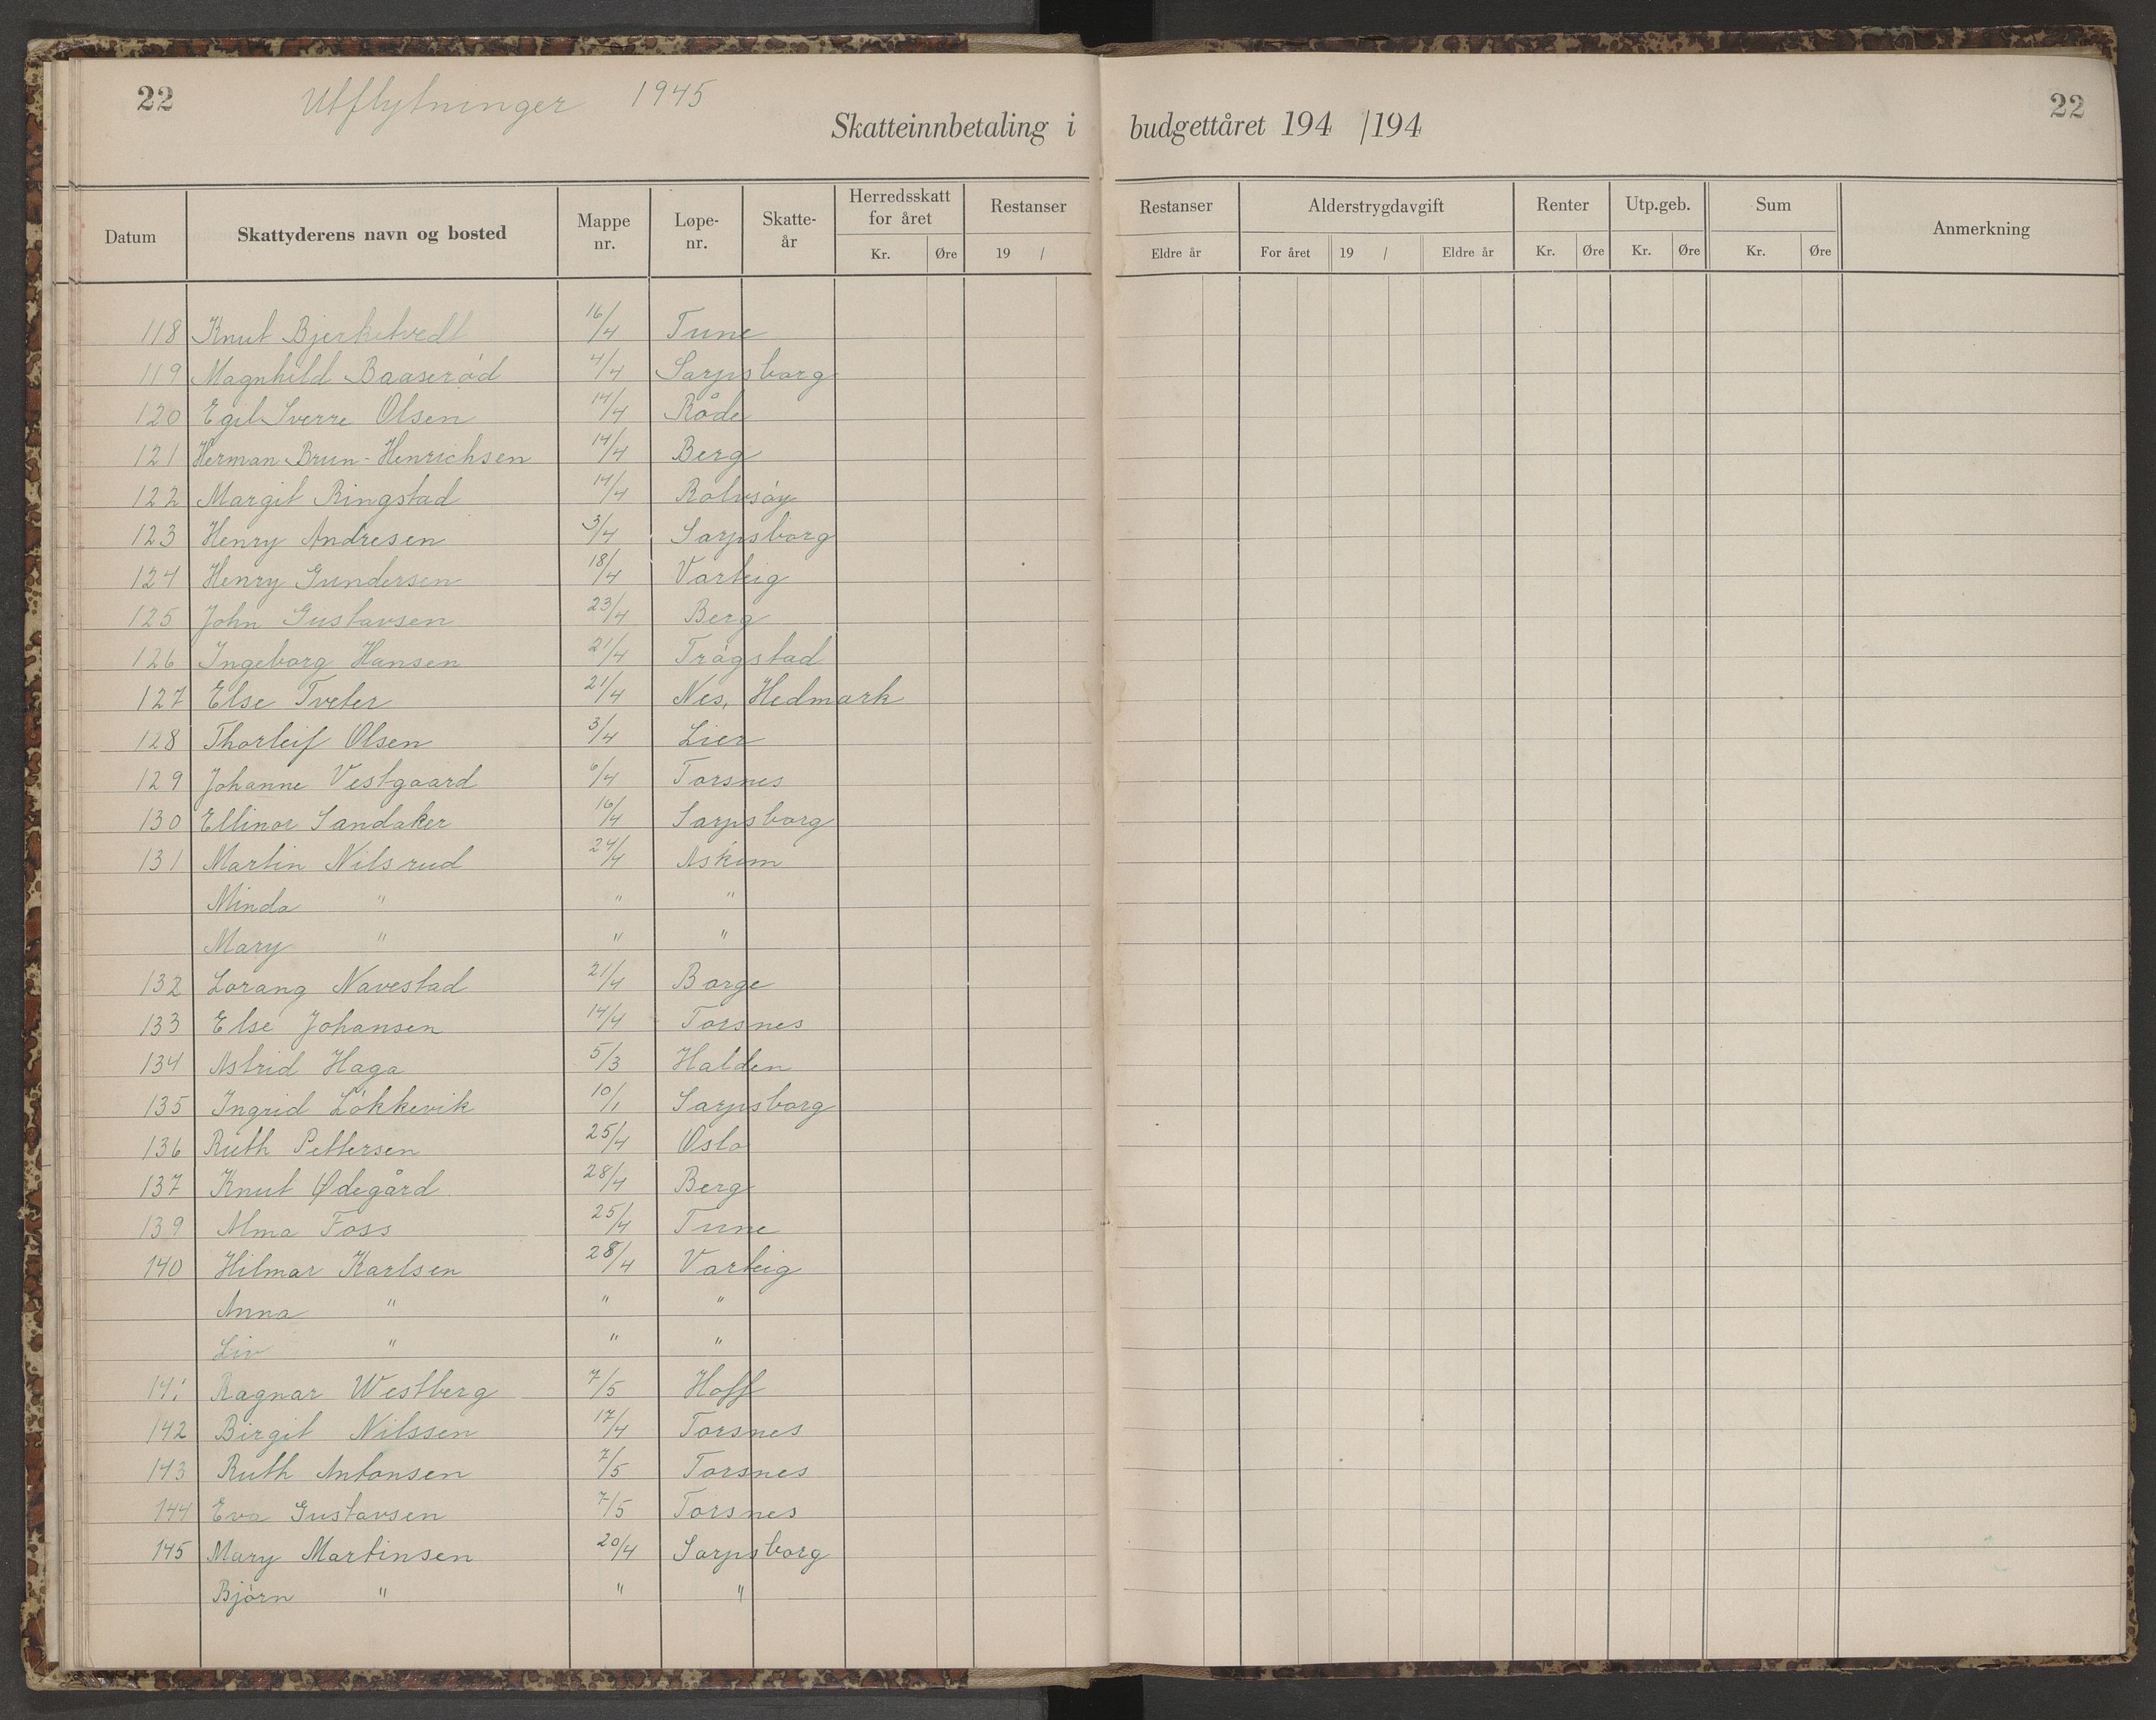 22 Utflytninger 1945 22
Skatteinnbetaling i budgettåret 194 /194
Datum Skattyderens navn og bosted Mappe nr. Løpe-nr. Skatte-år Herredsskatt for året Kr. Øre Restanser 19 / Restanser Eldre år Alderstrygdavgift For året 19 / Eldre år Renter Kr. Øre Utp.geb. Kr. Øre Sum Kr. Øre Anmerkning
118 Knut Bjerketvedt 16/4 Tune
119 Magnhild Baaserød 4/4 Sarpsborg
120 Egil Sverre Olsen 14/4 Råde
121 Herman Brun-Henrichsen 14/4 Berg
122 Margit Ringstad 14/4 Rolvsøy
123 Henry Andresen 3/4 Sarpsborg
124 Henry Gundersen 18/4 Varteig
125 John Gustavsen 23/4 Berg
126 Ingeborg Hansen 21/4 Trøgstad
127 Else Tveter 21/4 Nes, Hedmark
128 Thorleif Olsen 3/4 Lier
129 Johanne Vestgaard 6/4 Torsnes
130 Ellinor Sandaker 16/4 Sarpsborg
131 Martin Nilsrud 24/4 Askim
Minda " " "
Mary " " "
132 Lorang Navestad 21/4 Borge
133 Else Johansen 14/4 Torsnes
134 Astrid Haga 5/3 Halden
135 Ingrid Løkkevik 10/1 Sarpsborg
136 Ruth Pettersen 25/4 Oslo
137 Knut Ødegård 28/4 Berg
139 Alma Foss 25/4 Tune
140 Hilmar Karlsen 28/4 Varteig
Anna " " "
Liv " " "
141 Ragnar Westberg 7/5 Hoff
142 Birgit Nilssen 17/4 Torsnes
143 Ruth Antonsen 7/5 Torsnes
144 Eva Gustavsen 7/5 Torsnes
145 Mary Martinsen 20/4 Sarpsborg
Bjørn " " "